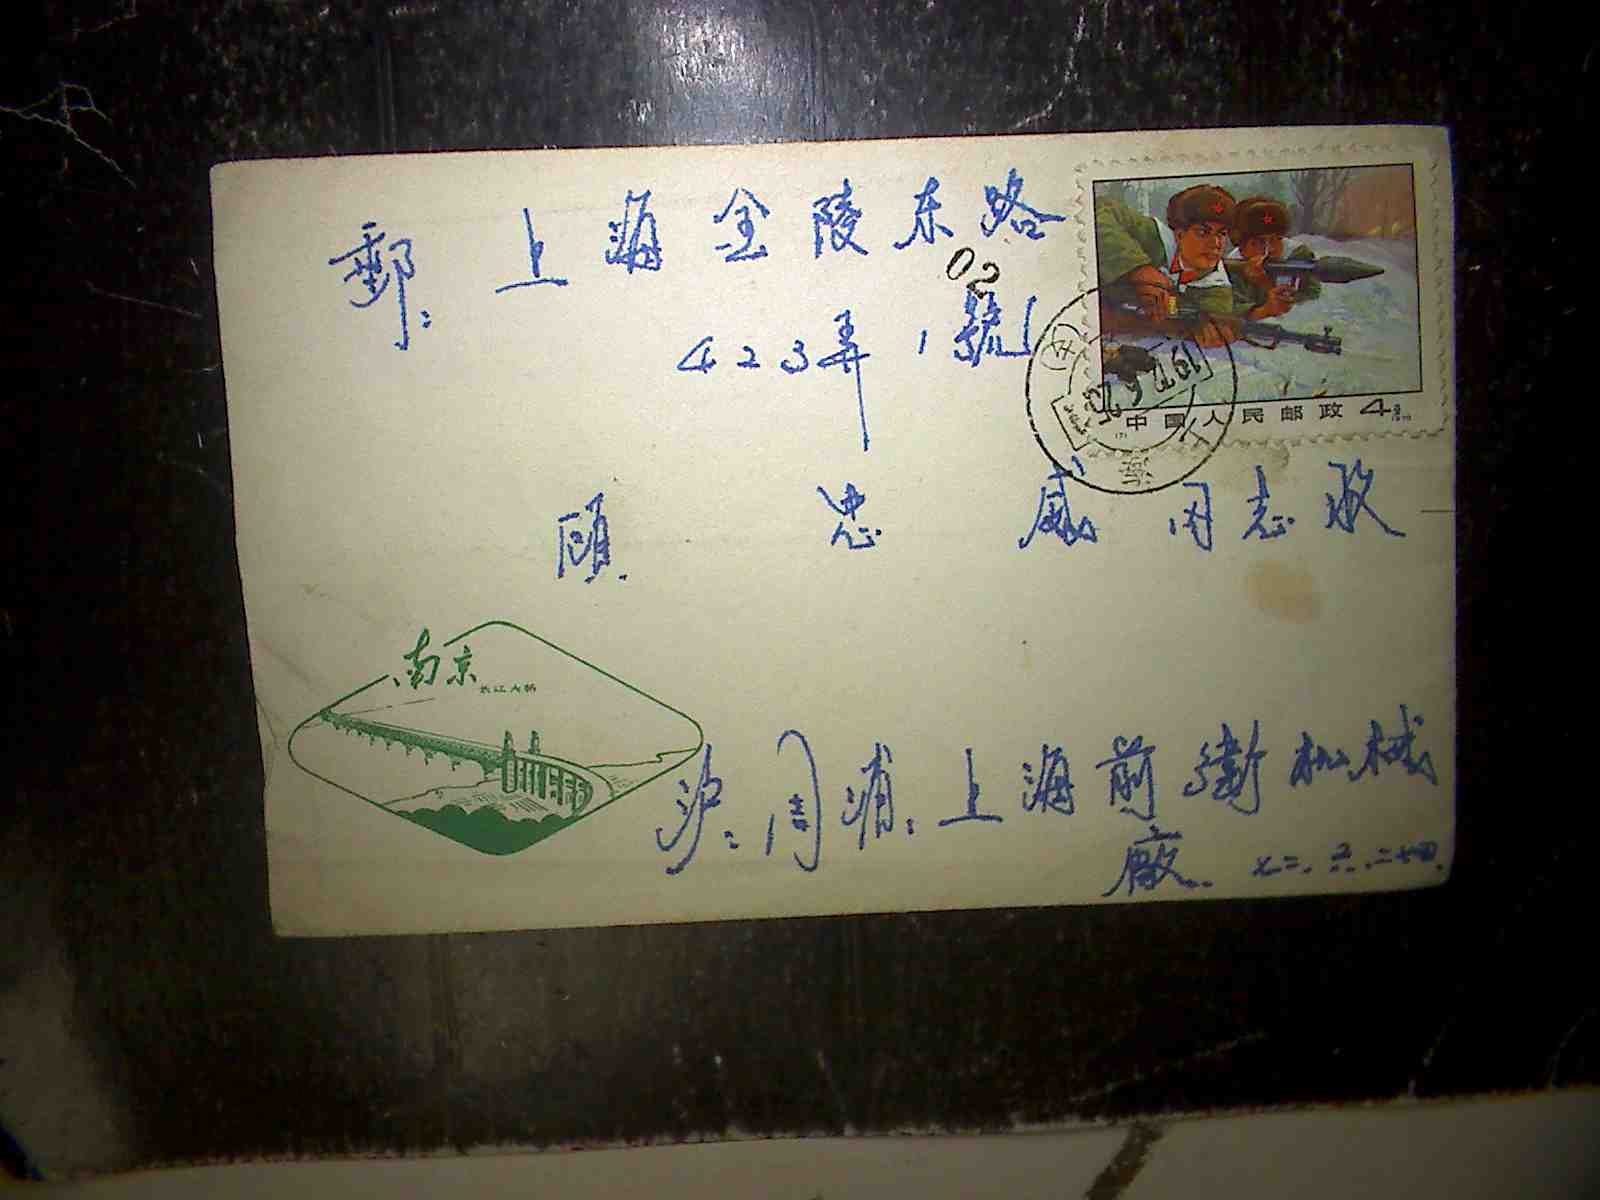 郵：上海金陵东路
02
423弄1號
中国人民邮政 4
顾忠威同志收
南京
长江大桥
沪：周浦：上海前衛机械
廠. 七二.六.二十四.